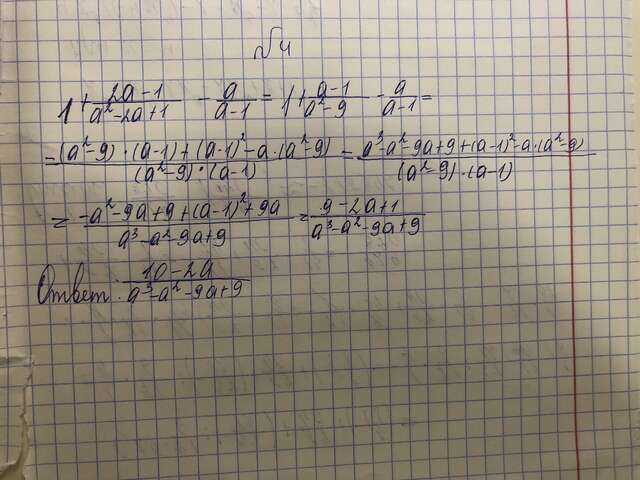 №4
1 + \frac{2a-1}{a^2-2a+1} - \frac{a}{a-1} = 1 + \frac{a-1}{a^2-9} - \frac{a}{a-1} =
= \frac{(a^2-9)·(a-1)+(a-1)^2-a·(a^2-9)}{(a^2-9)·(a-1)} = \frac{a^3-a^2-9a+9+(a-1)^2-a·(a^2-9)}{(a^2-9)·(a-1)}
= \frac{-a^2-9a+9+(a-1)^2+9a}{a^3-a^2-9a+9} = \frac{9-2a+1}{a^3-a^2-9a+9}
Ответ: \frac{10-2a}{a^3-a^2-9a+9}